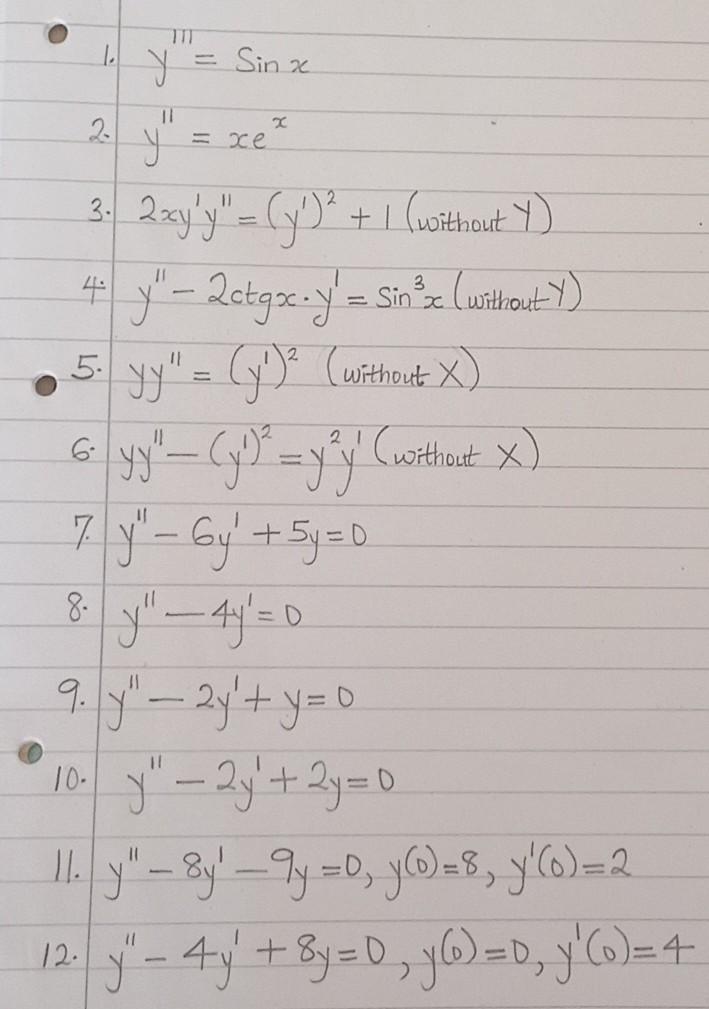 1. y''' = Sin x
2. y'' = xe^x
3. 2xy'y'' = (y')² + 1 (without Y)
4. y'' - 2ctgx · y' = sin³x (without Y)
5. yy'' = (y')² (without X)
6. yy'' - (y')² = y²y' (without X)
7. y'' - 6y' + 5y = 0
8. y'' - 4y' = 0
9. y'' - 2y' + y = 0
10. y'' - 2y' + 2y = 0
11. y'' - 8y' - 9y = 0, y(0) = 8, y'(0) = 2
12. y'' - 4y' + 8y = 0, y(0) = 0, y'(0) = 4